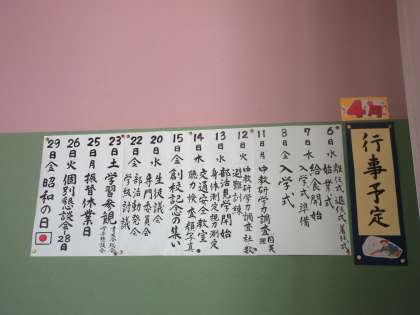 4月
行事予定
6日水 始業式 離任式 退任式 着任式
7日水 給食開始 入学式準備
8日金 入学式
11日月 中教研学力調査 国英理
12日火 中教研学力調査 社数 避難訓練
13日水 部活見学開始 身体測定 視力測定
14日木 交通安全教室 聴力検査 顔写真
15日金 創校記念の集い
20日水 生徒議会 専門委員会
22日金 部活動発会 学級討議
23日土 学習参観
25日月 振替休業日
26日火 個別懇談会 28日
29日金 昭和の日